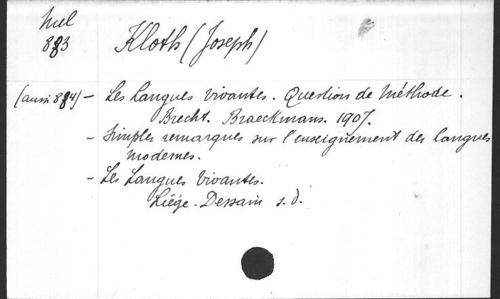 Mel
883
Kloth (Joseph)
(aussi 884) - Les Langues vivantes. Question de Méthode.
Brecht. Braeckmans. 1907.
- Simples remarques sur l'enseignement des langues
modernes.
- Les Langues Vivantes.
Liége - Dessain s.d.